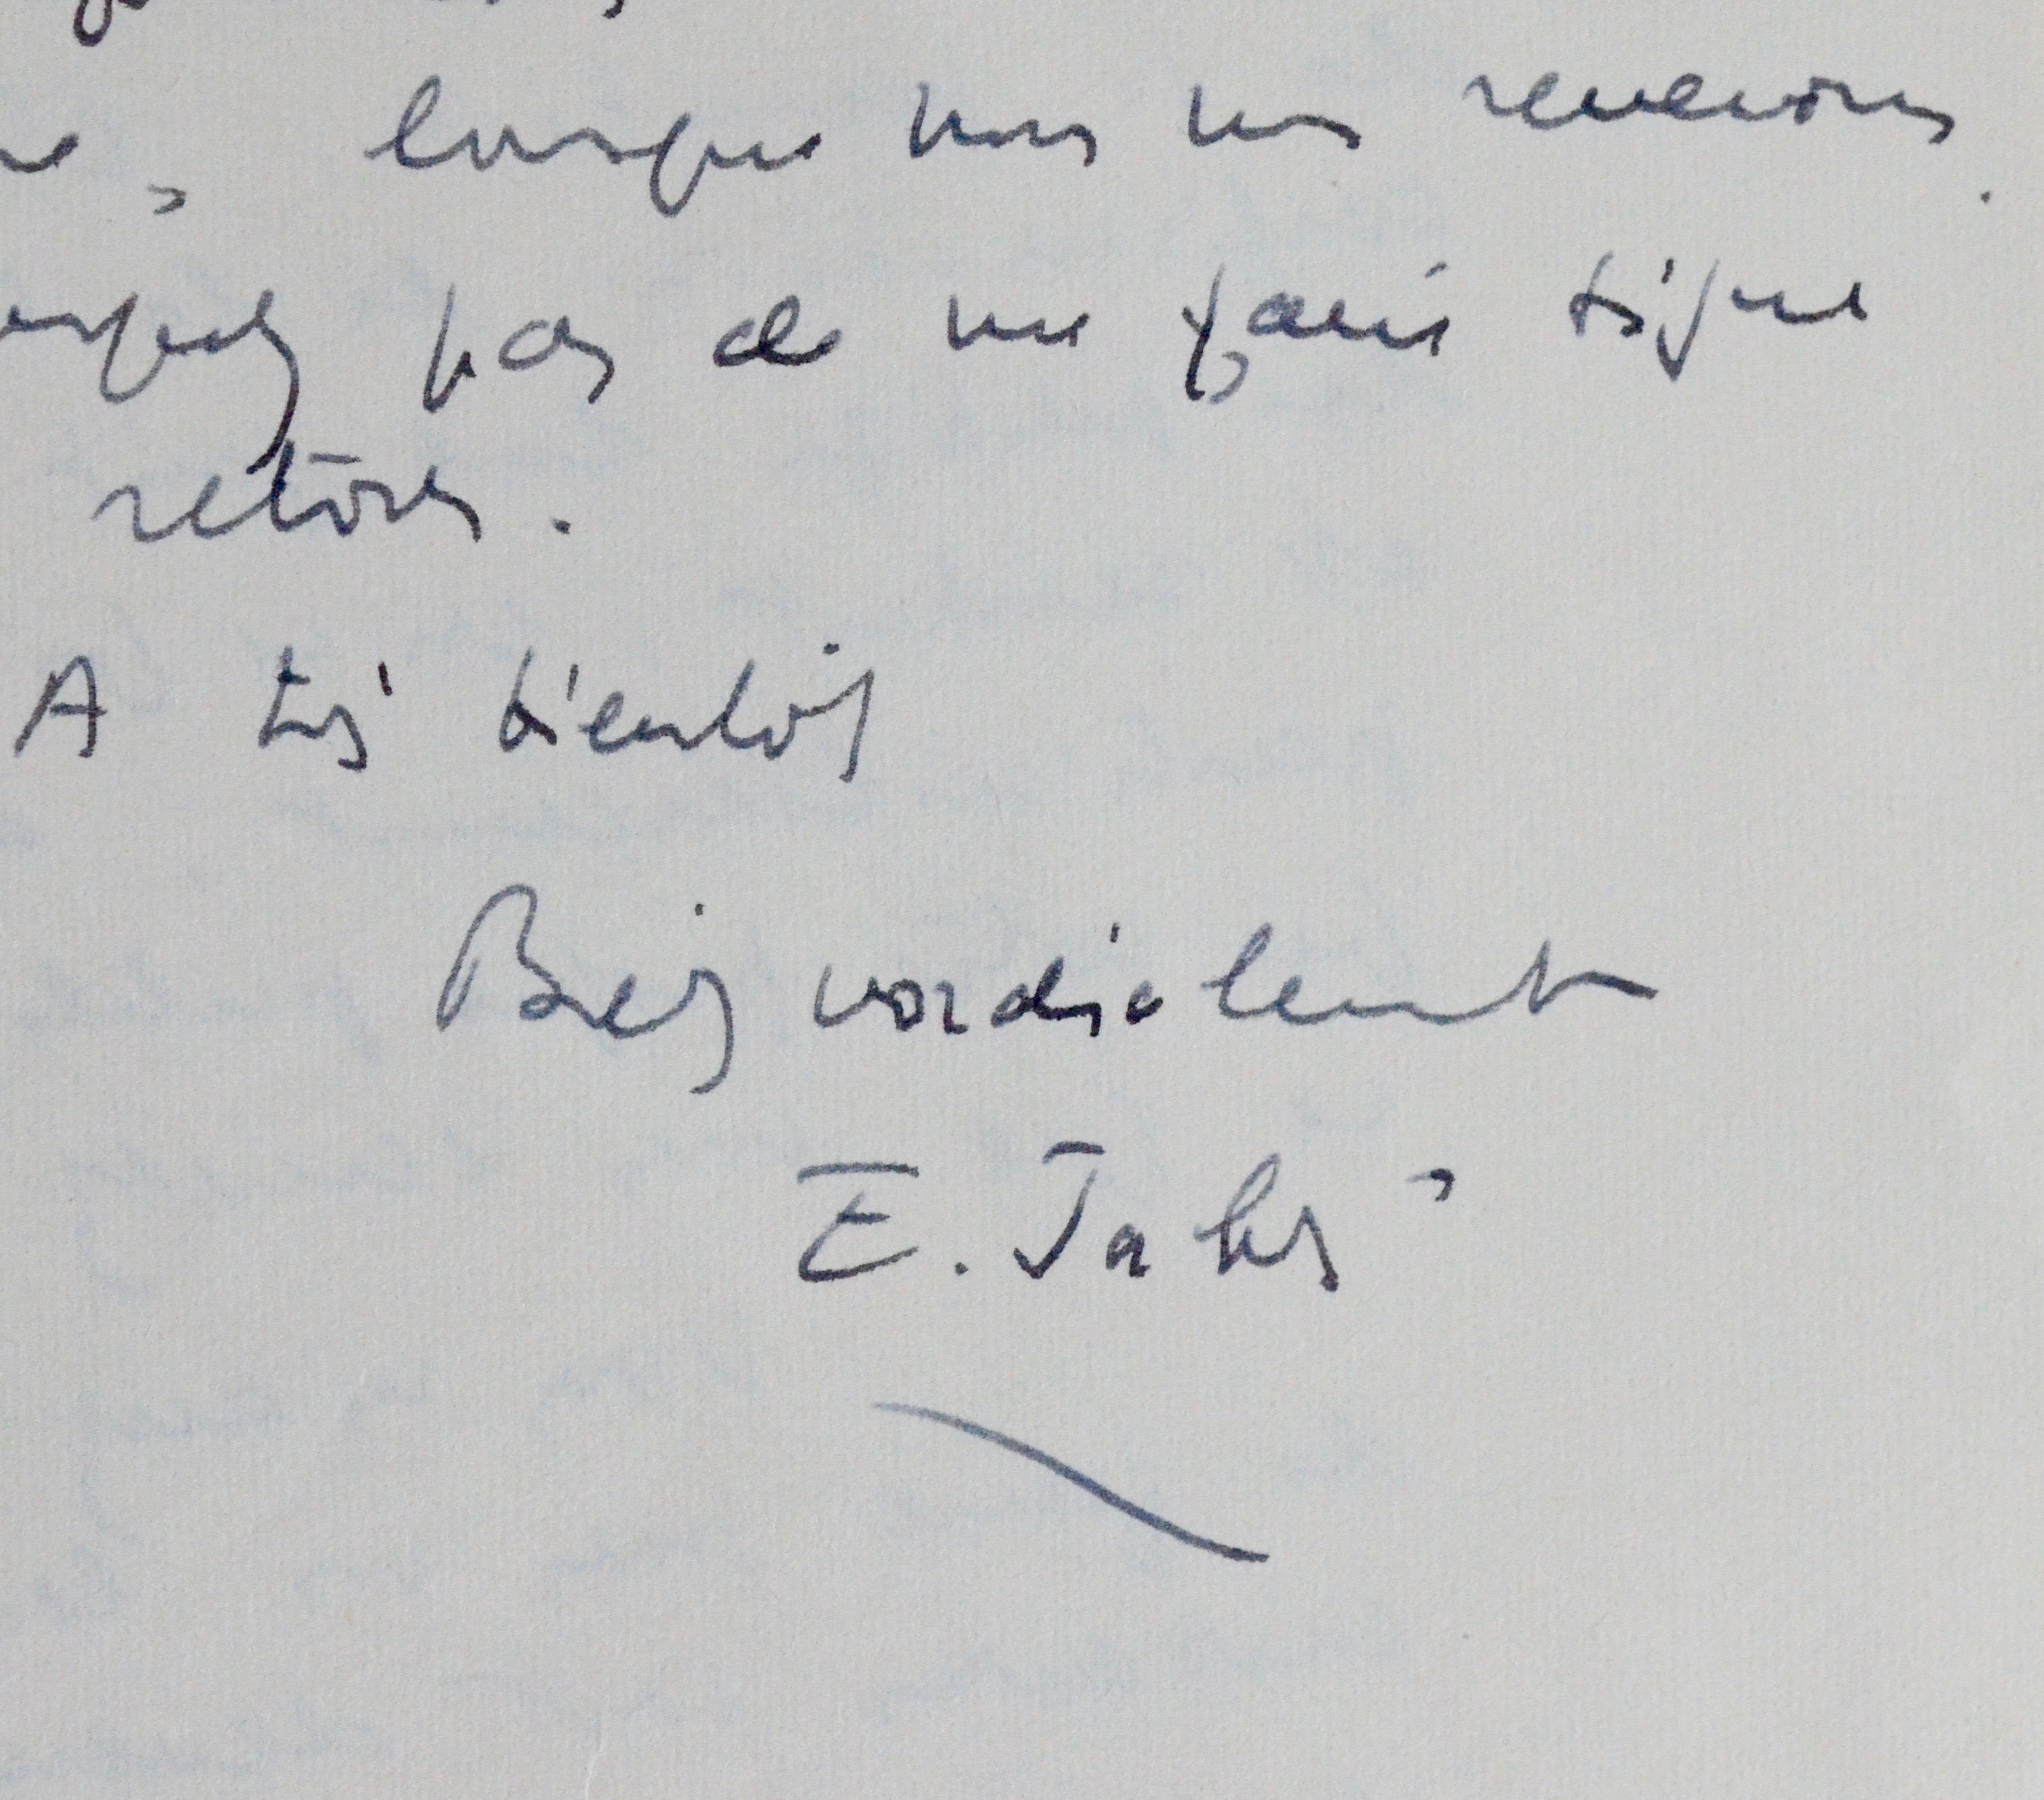 lorsque nous nous reverrons.
pas de me faire signe
retour.
A très bientôt
Bien cordialement
E. Jabès